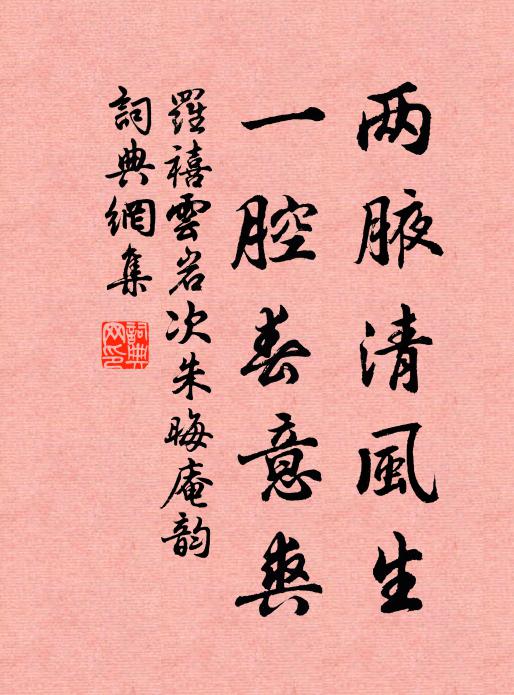 两腋清風生
一腔春意爽
羅禧雲岩次朱晦庵韵
詞典網集
詞典网印